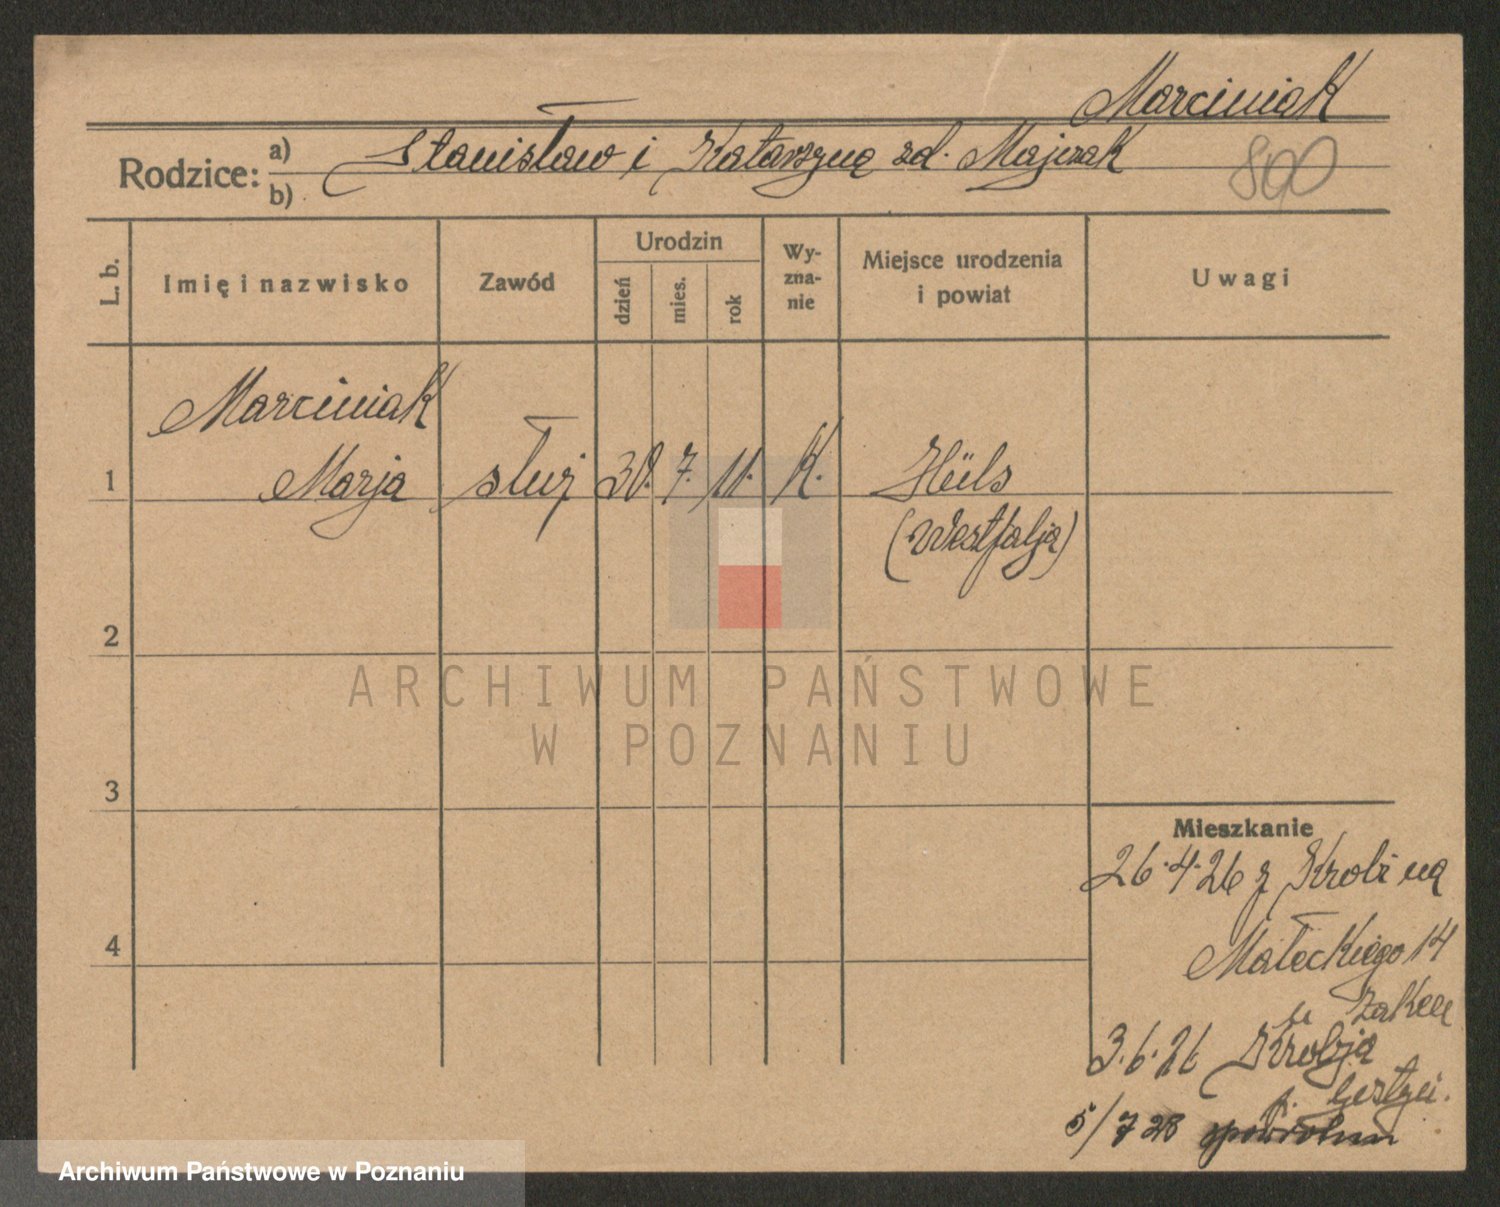 Marciniak
Rodzice: a) Stanisław i Katarzyna zd. Majczak
b)
800
L. b.
Imię i nazwisko
Zawód
Urodzin
dzień
mies.
rok
Wy-
zna-
nie
Miejsce urodzenia
i powiat
Uwagi
Marciniak
1 Marja służ 30. 7. 11. K. Hüls
(Westfalja)
2
3
4
Mieszkanie
26.4.26 z Krobi na
Małeckiego 14
3.6.26 Krobja
5/7 28
ARCHIWUM PAŃSTWOWE
W POZNANIU
Archiwum Państwowe w Poznaniu